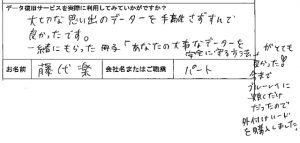 データ復旧サービスを実際に利用してみていかがですか？
大切な思い出のデーターを手離さずすんで
良かったです。
一緒にもらった冊子「あなたの大事なデーターを
安全に守る方法」
がとても
良かった！
今まで
ブルーレイに
頼りだけ
だったので
外付けハード
を購入しました。
お名前
藤代 楽
会社名またはご職業
パート